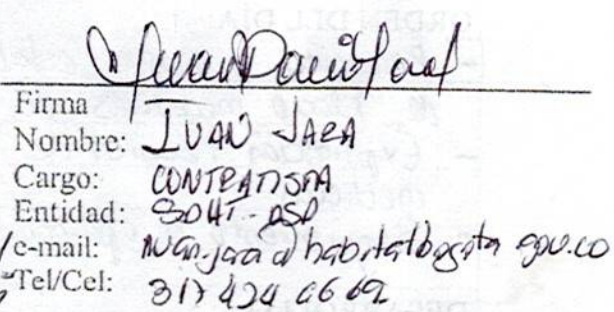 Firma
Nombre: IVAN JARA
Cargo: CONTRATISTA
Entidad: SDHT-
e-mail: ivan.jara@habitatbogota.gov.co
Tel/Cel: 317 424